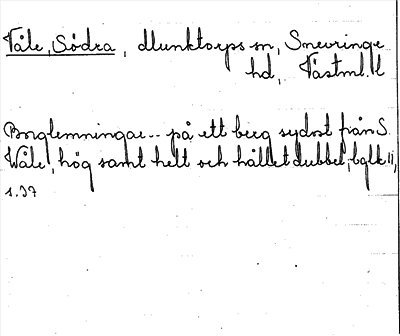 Våle, Södra, Munktorps sn, Snevringe
hd, Västml. l
Borglemningar -- på ett berg sydost från S.
Wåle, hög samt helt och hållet dubbel,
s. 37